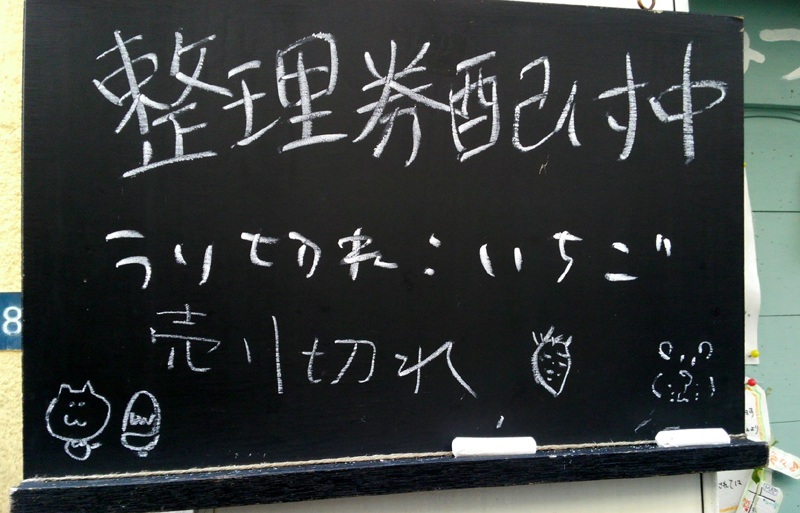 整理券配付中
うり切れ:いちご
売り切れ
8